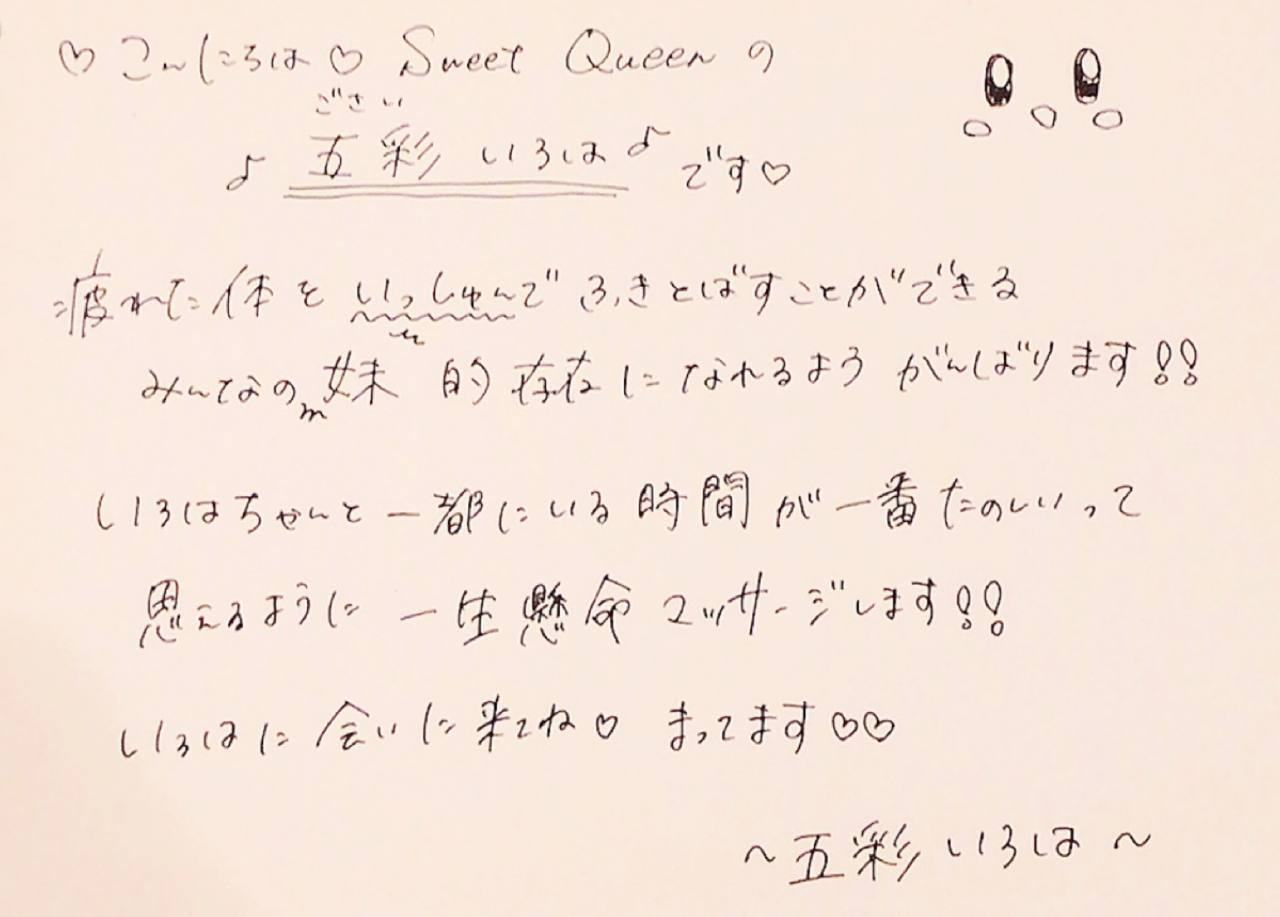 ♡こんにろは♡ Sweet Queenの
ごさい
♪五彩 いろは♪です♡
疲れた体をいっしゅんでふきとばすことができる
みんなの妹的存在になれるようがんばります!!
いろはちゃんと一都にいる時間が一番たのしいって
思えるように一生懸命マッサージします!!
いろはに会いに来てね♡ まってます♡♡
～五彩いろは～